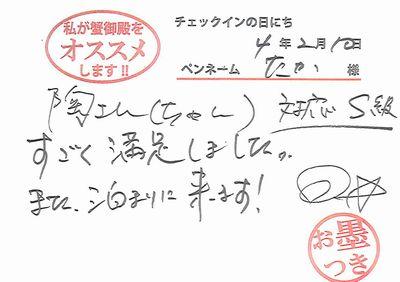 私が蟹御殿を
オススメ
します!!
チェックインの日にち
4年2月10日
ペンネーム たか 様
陶さん(ちゃん) 対応 S級
すごく満足しました。
また、泊まりに来ます!
お墨
つき